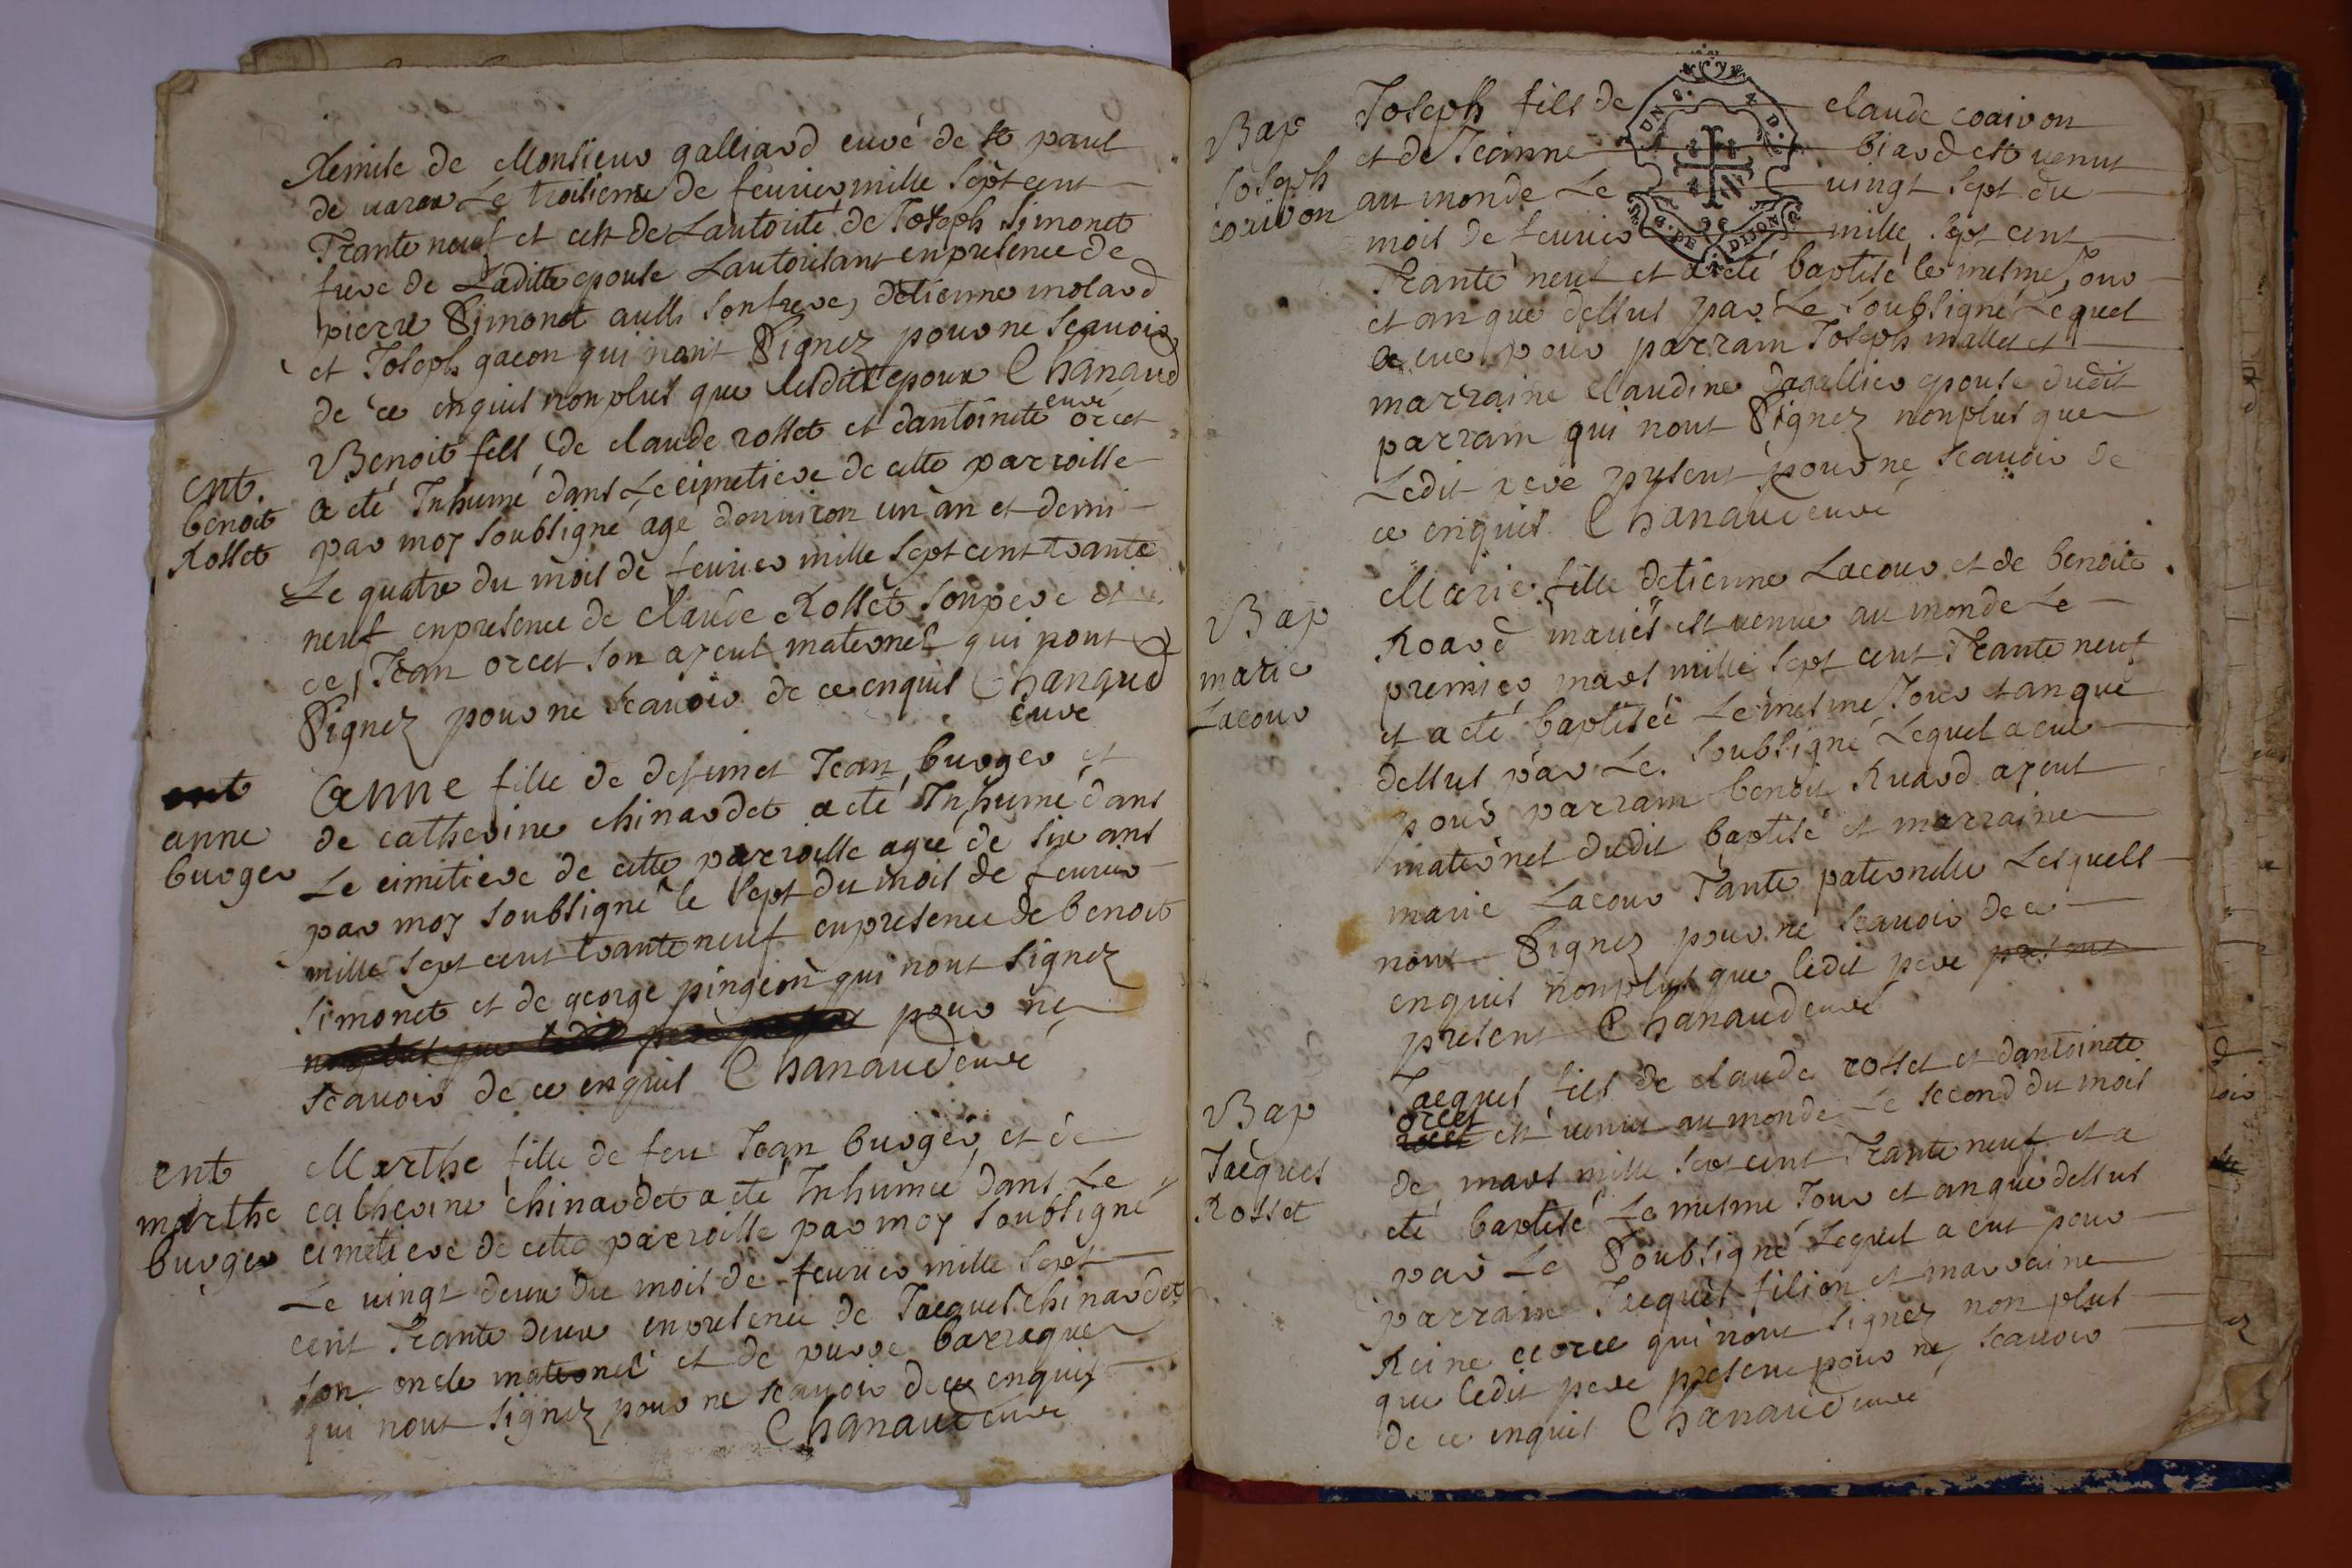 Remise de Monsieur galliard curé de st paul
de varax Le troisieme de fevrier mille sept cent
Trante neuf et cest de Lautorité de Joseph Simonet
frere de Laditte epouse Lautorisant en presence de
pierre Simonet aussi son frere, detienne molard
et Joseph gacon qui nont Signez pour ne scauoir
de ce enquis non plus que lesdits epoux Chanaud
curé
ent.
benoit
Rosset
Benoit fils de claude rosset et dantoinete orcet
a eté Inhumé dans Le cimetiere de cette parroisse
par moy soubsigné agé denuiron un an et demi
Le quatre du mois de feurier mille sept cent trante
neuf en presence de claude Rosset son pere et
de Jean orcet son ayeul maternel qui nont
Signez pour ne scauoir de ce enquis Chanaud
curé
ent
anne
burger
Anne fille de defunct Jean burger et
de catherine chinardet a eté Inhumé dans
Le cimetiere de cette parroisse agée de six ans
par moy soubsigné le sept du mois de feurier
mille sept cent trante neuf en presence de benoit
simonet et de george pingeon qui nont signez
pour ne
scauoir de ce enquis Chanaud curé
ent
marthe
burger
Marthe fille de feu Jean burger et de
catherine chinardet a eté Inhumée dans Le
cimetiere de cette parroisse par moy soubsigné
Le uingt deux du mois de feurier mille sept
cent Trante deux en presence de Jacques chinardet
son oncle maternel et de pierre barraque
qui nont signez pour ne scauoir de ce enquis
Chanaud curé
Bap
Joseph
coaivon
Joseph fils de claude coaivon
et de Jeanne biard est venut
au monde Le vingt sept du
mois de feurier mille sept cent
Trante neuf et a eté baptisé le mesme Jour
et an que dessus par Le soubsigné Lequel
a eue pour parrain Joseph mallet et
marraine claudine dagallier epouse dudit
parrain qui nont Signez non plus que
Ledit pere present pour ne scauoir de
ce enquis Chanaud curé
Bap
marie
Lacour
Marie fille detienne Lacour et de benoite
Roard mariés est venue au monde Le
premier mars mille sept cent Trante neuf
et a eté baptisée Le mesme Jour et an que
dessus par Le soubsigné Lequel a eue
pour parrain benoit Ruard ayeul
maternel dudit baptisé et marraine
marie Lacour Tante paternelle Lesquels
nont Signez pour ne scauoir de ce
enquis non plus que ledit pere present
present Chanaud curé
Bap
Jacques
Rosset
Jacques fils de claude rosset et dantoinete
orcet
est venut au monde Le second du mois
de mars mille sept cent Trante neuf et a
eté baptisé Le mesme Jour et an que dessus
par Le Soubsigné Lequel a eut pour
parrain Jacques filion et marraine
Reine qui nont signez non plus
que ledit pere present pour ne scauoir
de ce enquis Chanaud curé